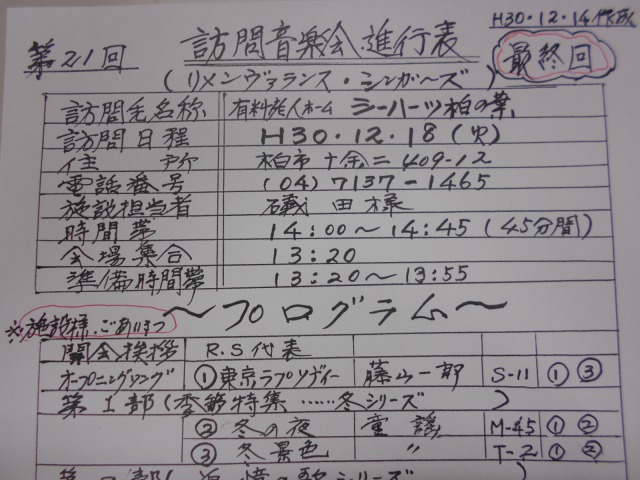 H30.12.14作成
第21回 訪問音楽会進行表 最終回
(リメンヴァランス・シンガーズ)
訪問宅名称 有料老人ホーム シーハーツ柏の葉
訪問日程 H30.12.18(火)
住所 柏市十余二409-12
電話番号 (04)7137-1465
施設担当者 礒田様
時間帯 14:00〜14:45(45分間)
会場集合 13:20
準備時間帯 13:20〜13:55
〜プログラム〜
※施設様ごあいさつ
開会挨拶 R.S代表
オープニングソング ①東京ラプソディー 藤山一郎 S-11 ① ③
第1部(季節特集……冬シリーズ)
② 冬の夜 童謡 M-45 ① ②
③ 冬景色 〃 T-2 ① ②